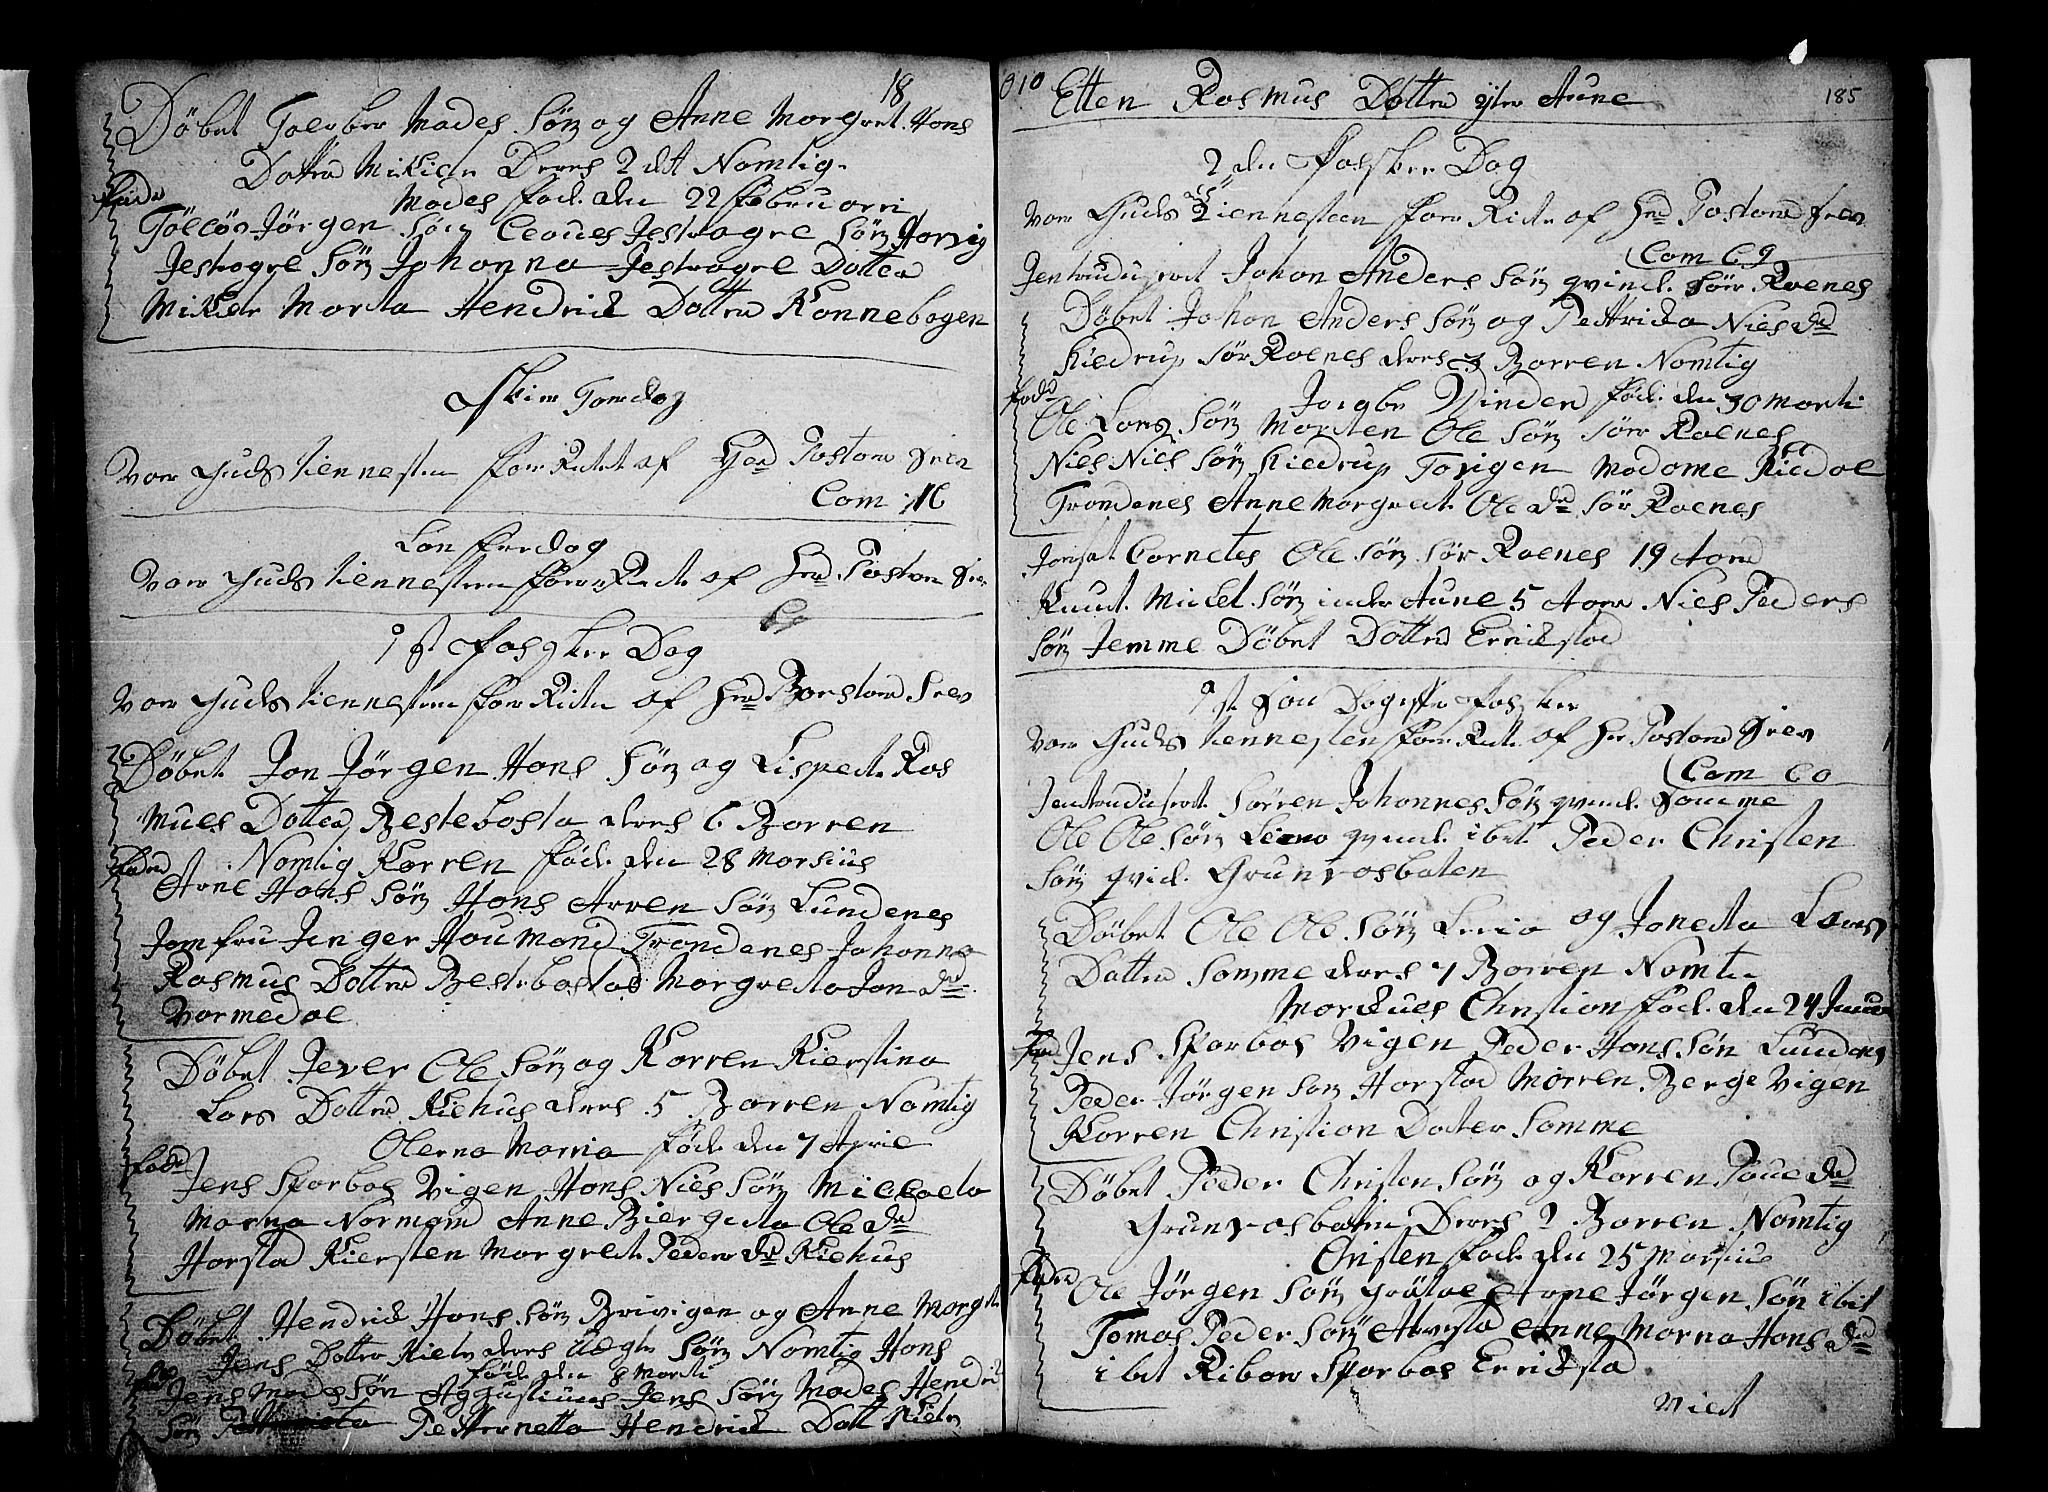 18
Döbet Toerber Mades Sön og Anne Morgret Hans
Datter Mikier Deres 2 dtt Nomlig
Mades föd. den 22 Februari
fadr
Tölcös Jörgen Sön Claues Jestragre Sön Horvig
Jestragre Sön Johanna Jestragre Dotter
Mikier Morta Hendrik Dotter Konnebogen
Skier Torsdag
Voer Guds tiennesten forrRetet af Her Pastore Grev
Com: 16
Lon ferdog
Voer Guds tiennesten forrRett af Hr Pastor
1 st Passker Dag
Voer Guds tiennesten forrRettn af Hr Porstore Grev
Döbet Jon Jörgen Hans Sön og Lispect Ros
mues Dotter Bestebosta deres 6 Borren
Nomlig Korren föd. den 28 Morsius
fadre
Arne Hans Sön Hans Arren Sön Lundenes
Jomfru Jenger Houmand Trondenes Johanna
Rosmus Dotter Bestebostad Morgreta Jon dr
Vormedal
Döbet Jever Ole Sön og Korren Kierstina
Lars Dotter Kiehus deres 5 Borren Nomlig
Olerna Morria föd. den 7 Aprie
fadr
Jens Sparbos Vigen Hans Nies Sön Mickaela
Morna Normand Anne Biergieta Ole dr
Horstad Kiersten Morgret Peders dr Kiehus
Döbet Hendrik Hans Sön Brivigen og Anne Morgrt
Jens Dotter deres Uægte Sön Nomlig Hans
föd. den 8 Morti
Jens Mads Sön Aggustinus Jens Sön Mades Hendrik
Sön Petternetta Hendrik Dott
810
185
Ellen Rosmus Dotter ytre Aune
2 den Passker Dag
Voer Guds Tiennesteen forr Rittn af Hr Pastore Grev
Com 69
Jentrodusrat Johan Anders Sön qvind. Sörr Roenes
Döbet Johan Anders Sön og Pettrika Nies dr
Kiedrup Sör Roenes deres 3 Borren Nomlig
Jorgber Winder föd. den 30 Marti
fadr
Ole Lors Sön Morten Ole Sön Sörr Roenes
Nies Nies Sön Kiedrup Torigen Madame
Trondenes Anne Morgret Ole dr Sör Roenes
Jorsat Cornetes Ole Sön Sör Roenes 19 Aar
Knut Mickel Sön inder Aune 5 Aar Nies Peders
Sön Jemme Döbet Dotter Erickstad
1 st Son Dag efter Passker
Voer Guds tiennesten forr Rett af Hr Pastore Grev
Com 60
Jentrodusrat Sörren Johannes Sön qvind. Somme
Ole Ole Sön Leino qvind. ibet Peder Christen
Sön qvid. Grunrosbaten
Döbet Ole Ole Sön Leino og Joneta Lars
Dotter Somme deres 7 Borren Nomlig
Morkues Christion föd. den 24 Janua
fad
Jens Sparbos Vigen Peder Hans Sön Lundenes
Peder Jörgen Sön Horstad Morren Berge Vigen
Korren Christion Dotter Somme
Döbet Peder Christen Sön og Korren Poue dr
Grunrosbaten Deres 2 Borren Nomlig
Cristen föd. den 25 Morsius
fadre
Ole Jörgen Sön Arne Jörgen Sön ibet
Tomas Peder Sön Anne Morna Hans dr
ibet Ribor Sparbos Erickstad
Vielt